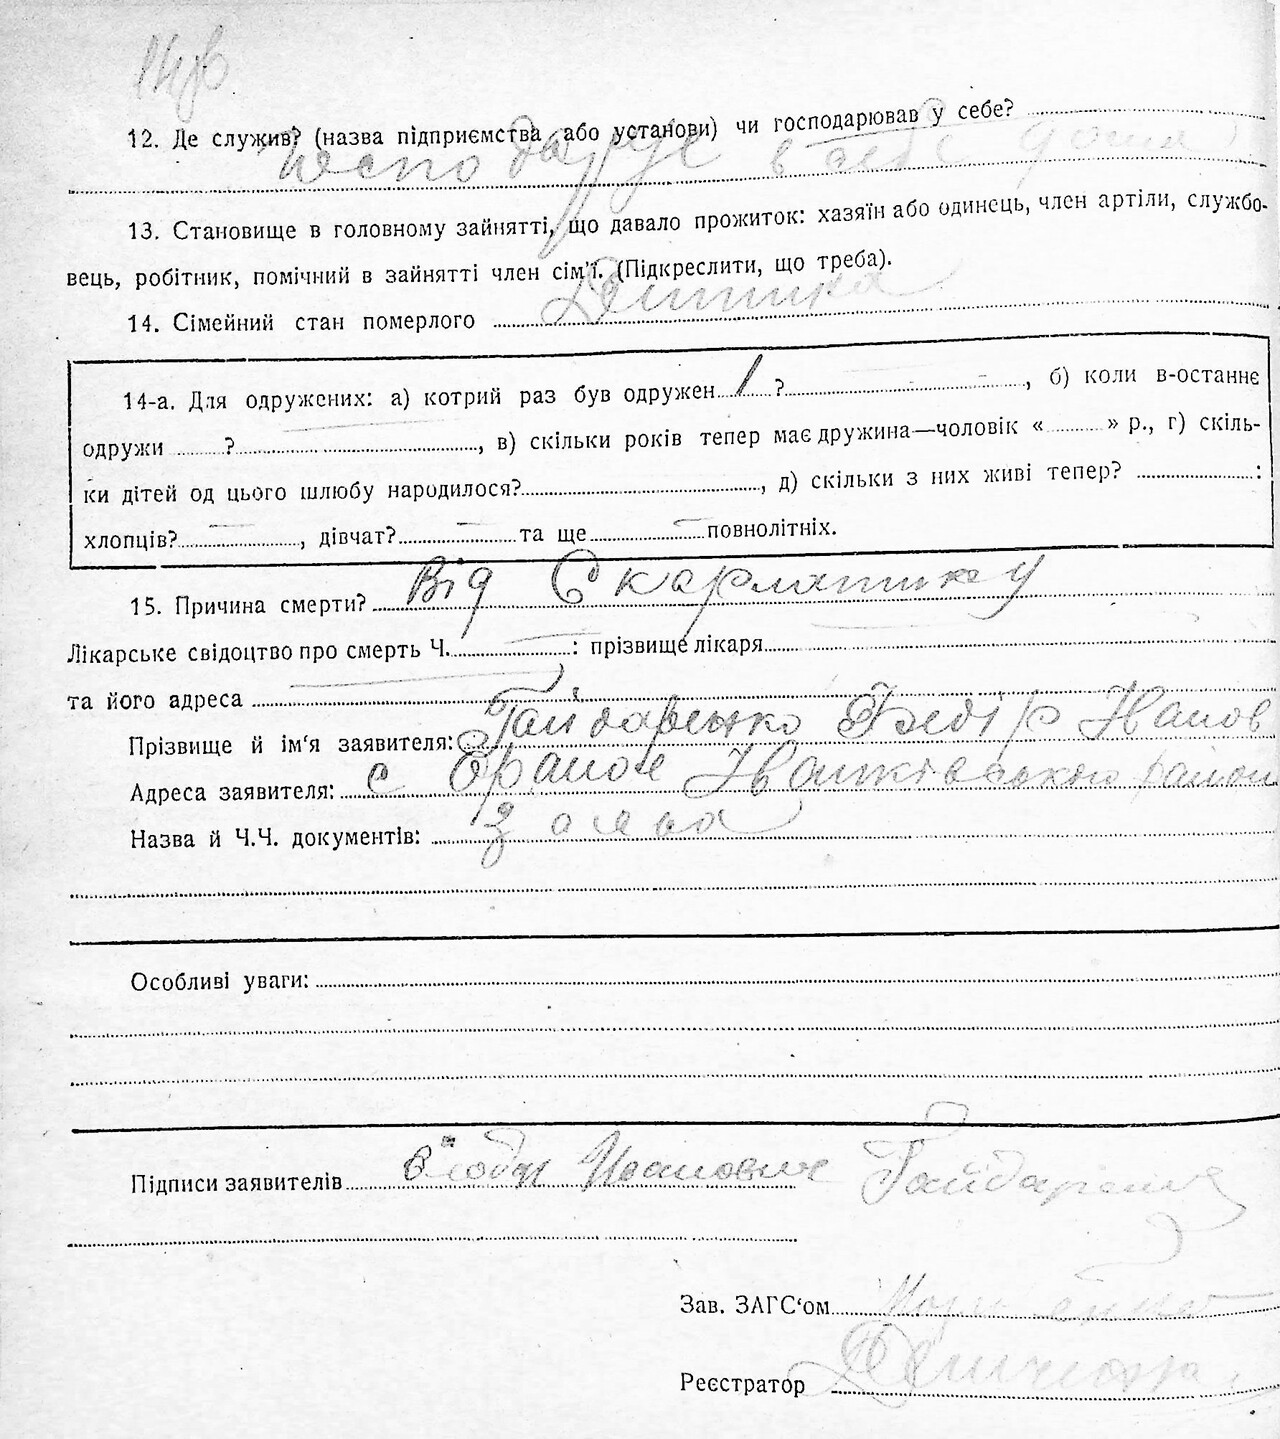 12. Де служив? (назва підприємства або установи) чи господарював у себе?
господарує в себе дома
13. Становище в головному зайнятті, що давало прожиток: хазяїн або одинець, член артіли, службо-
вець, робітник, помічний в зайнятті член сім'ї. (Підкреслити, що треба).
14. Сімейний стан померлого Дитина
14-а. Для одружених: а) котрий раз був одружен ? , б) коли в-останнє
одружи ? , в) скільки років тепер має дружина—чоловік « » р., г) скіль-
ки дітей од цього шлюбу народилося? , д) скільки з них живі тепер? :
хлопців? — , дівчат? — та ще — повнолітніх.
15. Причина смерти? Від Скарлятини
Лікарське свідоцтво про смерть Ч. : прізвище лікаря
та його адреса
Прізвище й ім'я заявителя: Гайдаренко Федір Іванов
Адреса заявителя: с Ораное Іванківського район
Назва й Ч.Ч. документів: заява
Особливі уваги:
Підписи заявителів Іванович Гайдаренко
Зав. ЗАГС'ом
Реєстратор